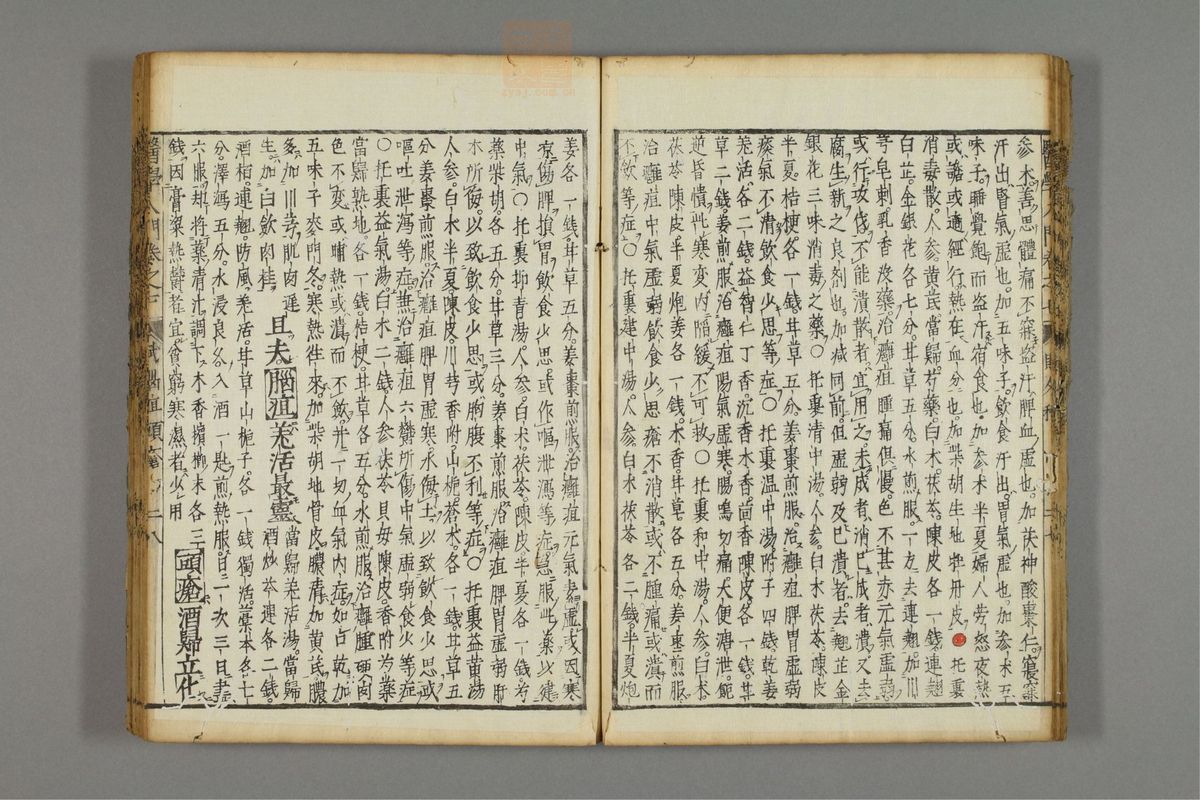 參朮蒼思體痛不寐盜汗脾血虛也加茯神酸棗仁寢寐
汗出腎氣虛也加五味子飲食汗出胃氣虛也加參朮五
味子睡覺飽而盜汗宿食也加參朮半夏婦人勞怒夜熱
或譫或適經行熱在血分也加柴胡生地牡丹皮 托裏
消毒散人參黃芪當歸芍藥白朮茯苓陳皮各一錢連翹
白芷金銀花各七分甘草五分水煎服一方去連翹加川
芎皂刺乳香沒藥治癰疽腫痛俱慢色不甚赤元氣虛弱
或行攻伐不能潰散者宜用之未成者消已成者潰又去
腐生新之良劑也加減同前但虛弱及已潰者去翹芷金
銀花三味消毒之藥〇托裏清中湯人參白朮茯苓陳皮
半夏桔梗各一錢甘草五分姜棗煎服治癰疽脾胃虛弱
痰氣不清飲食少思等症〇托裏溫中湯附子四錢乾姜
羌活各二錢益智仁丁香沉香木香茴香陳皮各一錢甘
草二錢姜煎服治癰疽陽氣虛寒腸鳴切痛大便溏泄呃
逆昏憒此寒變內陷緩不可救〇托裏和中湯人參白朮
茯苓陳皮半夏炮姜各一錢木香甘草各五分姜棗煎服
治癰疽中氣虛弱飲食少思瘡不消散或不腫痛或潰而
不歛等症〇托裏建中湯人參白朮茯苓各二錢半夏炮
姜各一錢甘草五分姜棗煎服治癰疽元氣素虛或因寒
凉傷脾損胃飲食少思或作嘔泄瀉等症急服此藥以建
中氣〇托裏抑青湯人參白朮茯苓陳皮半夏各一錢芍
藥柴胡各五分甘草三分姜棗煎服治癰疽脾胃虛弱肝
木所侮以致飲食少思或胸腹不利等症〇托裏益黃湯
人參白朮半夏陳皮川芎香附山梔蒼朮各一錢甘草五
分姜棗煎服治癰疽脾胃虛寒水侮土以致飲食少思或
嘔吐泄瀉等症無治癰疽六鬱所傷中氣虛弱食少等症
〇托裏益氣湯白朮二錢人參茯苓貝母陳皮香附芍藥
當歸熟地各一錢桔梗甘草各五分水煎服治癰腫硬肉
色不變或晡熱或潰而不歛并一切血氣內症如占乾加
五味子麥門冬寒熱往來加柴胡地骨皮膿清加黃芪膿
多加川芎肌肉遲
生加白歛肉桂 且夫腦疽羌活最靈 當歸羌活湯當歸
酒炒芩連各二錢
酒柏連翹防風羌活甘草山梔子各一錢獨活藁本各七
分澤瀉五分水浸良久入酒一匙煎熱服日三次三日盡
六服却將藥清汁調下木香檳榔末各三
錢因膏粱熱鬱者宜食窮寒濕者少用 頭瘡酒歸立化